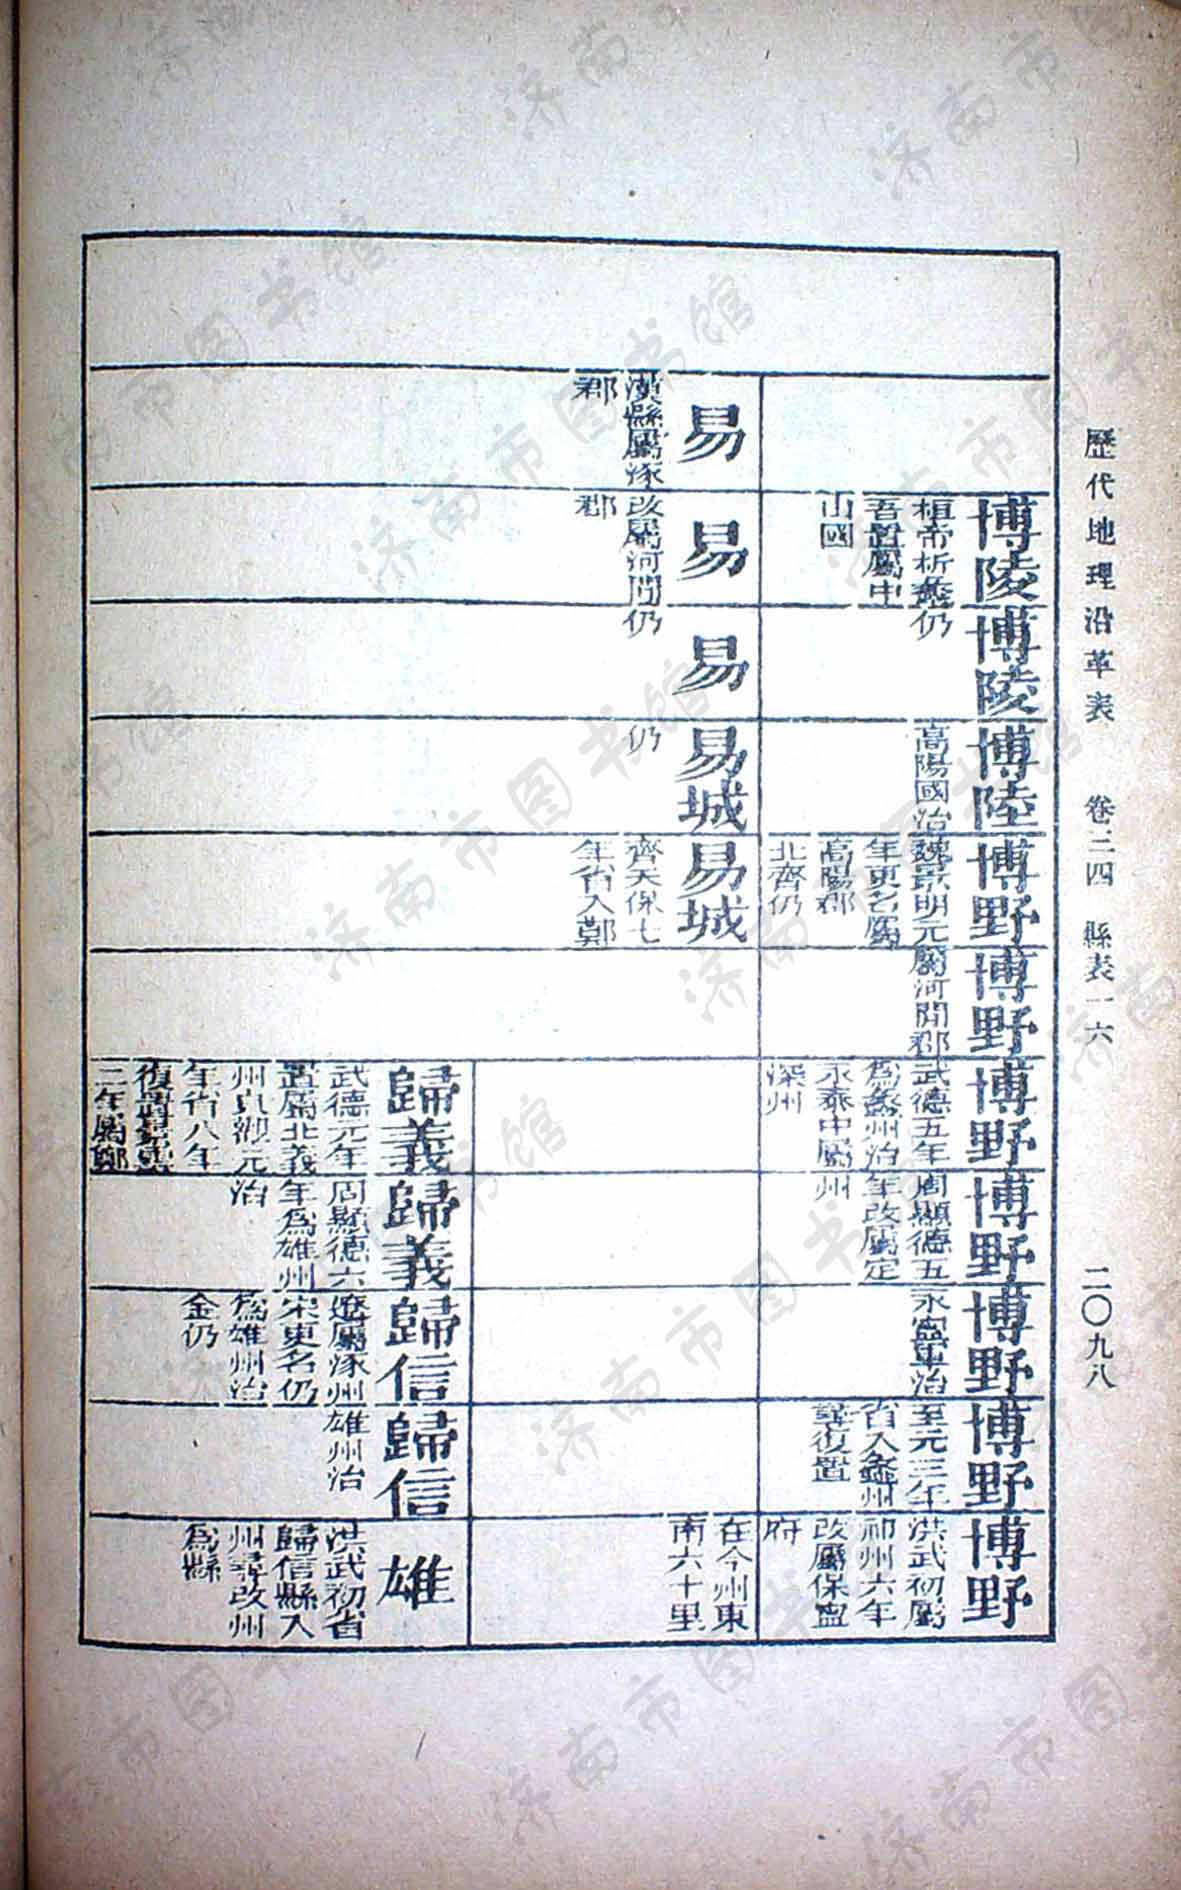 歷代地理沿革表 卷三四 縣表一六 二〇九八
博陵
桓帝析蠡
吾置屬中
山國
博陵
仍
博陸
高陽國治
博野
魏景明元
年更名屬
高陽郡
北齊仍
博野
屬河間郡
博野
武德五年
為蠡州治
永泰中屬
深州
博野
周顯德五
年改屬定
州
博野
永寧軍治
博野
至元三年
省入蠡州
尋復置
博野
洪武初屬
祁州六年
改屬保定
府
易
漢縣屬涿
郡
易
改屬河間
郡
易
仍
易城
仍
易城
齊天保七
年省入鄚
在今州東
南六十里
歸義
武德元年
置屬北義
州貞觀元
年省八年
復置景雲
二年屬鄚
歸義
周顯德六
年為雄州
治
歸信
遼屬涿州
宋更名仍
為雄州治
金仍
歸信
雄州治
雄
洪武初省
歸信縣入
州尋改州
為縣
济南市图书馆